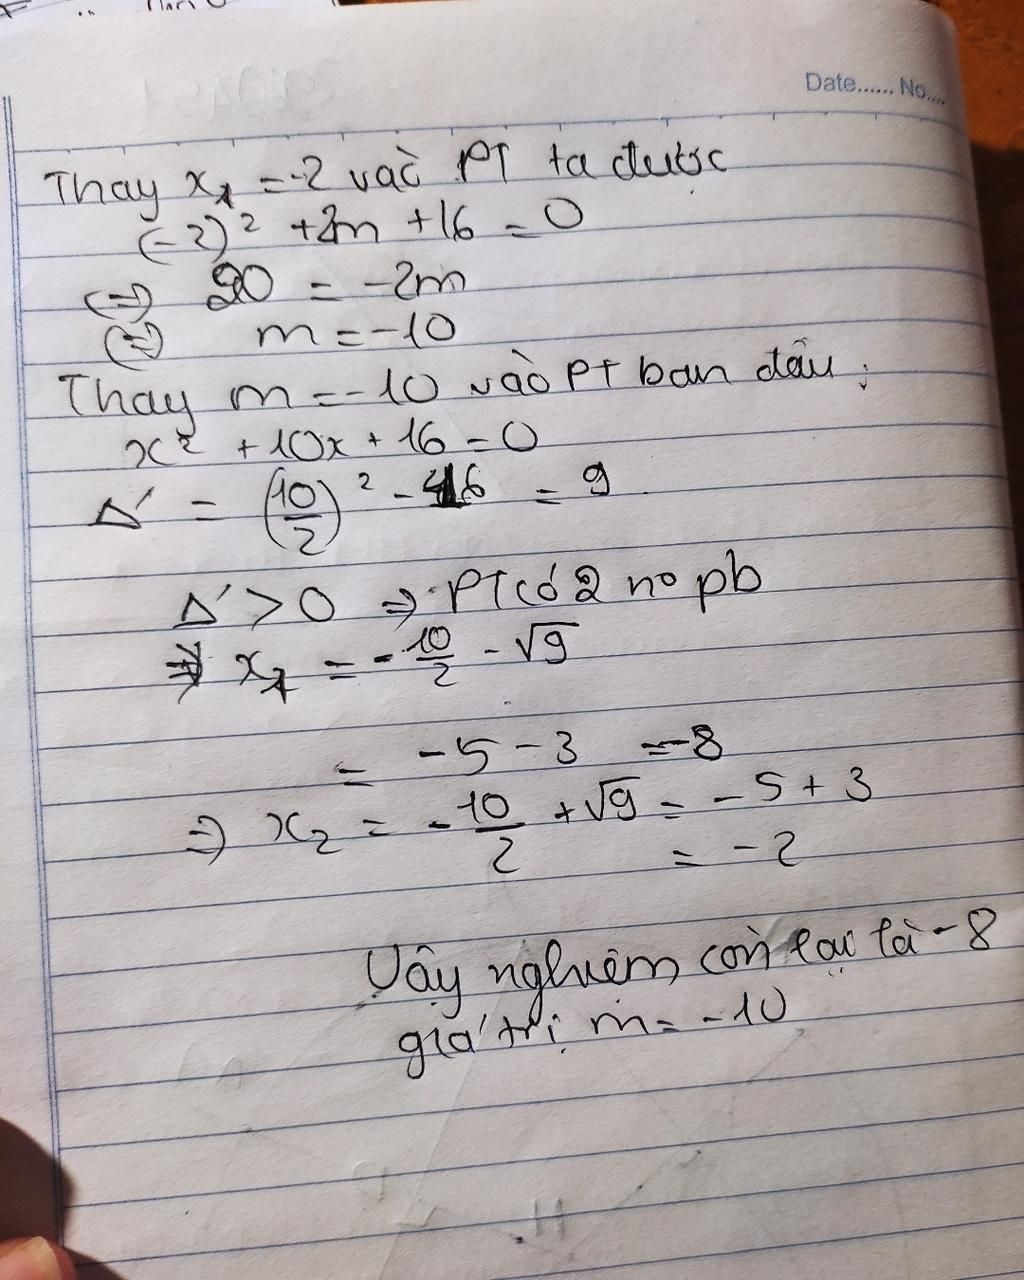 Date...... No....
Thay x₁ = -2 vaò PT ta được
(-2)² + 2m + 16 = 0
(=) 20 = -2m
(=) m = -10
Thay m = -10 vào PT ban đầu :
x² + 10x + 16 = 0
Δ' = (10/2)² - 16 = 9
Δ' > 0 => PT có 2 no pb
=> x₁ = - 10/2 - √9
= -5 - 3 = -8
=> x₂ = - 10/2 + √9 = -5 + 3
= -2
Vậy nghiệm còn lại là -8
giá trị m = -10